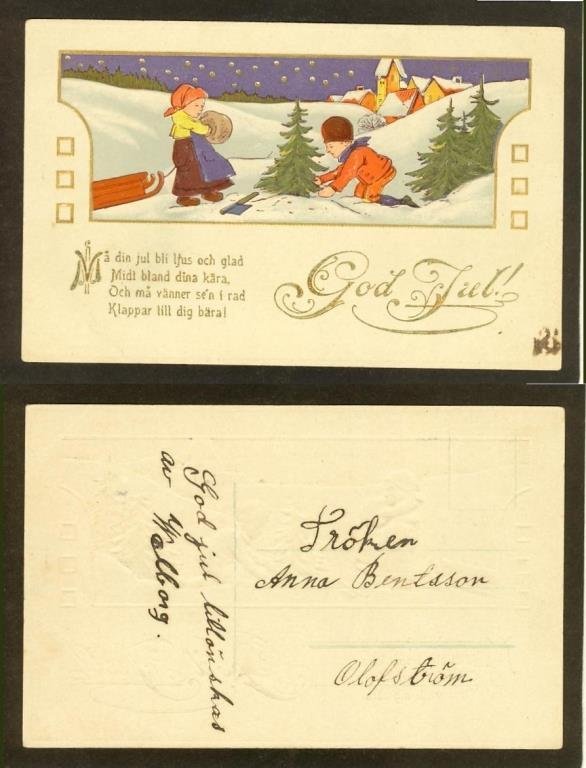 Må din jul bli ljus och glad
Midt bland dina kära,
Och må vänner se'n i rad
Klappar till dig bära!
God Jul!
God jul tillönskas
av Walborg.
Fröken
Anna Bentsson
Olofström